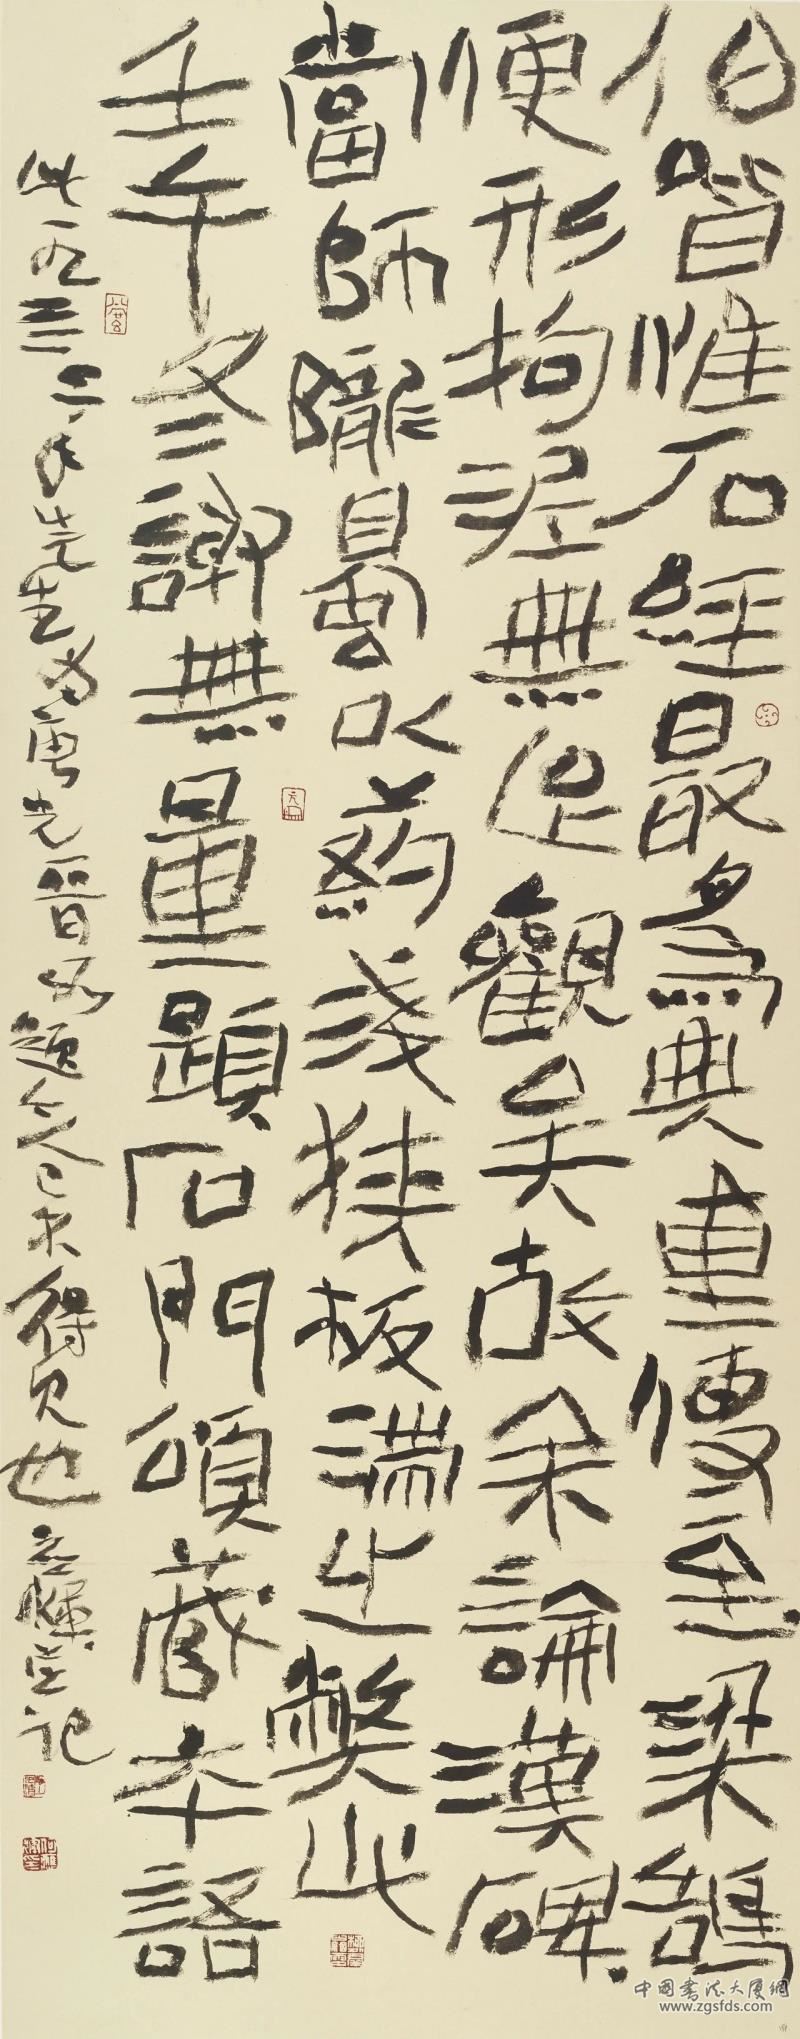 伯喈惟石經最為典重傳至梁鵠
便形拘泥無足觀矣故余論漢碑
當師隴蜀以葯淺狹板滯之弊此
壬午冬謝無量題石門頌藏本語
此一九亖二年先生為唐先晉所題今人已未得見也應輝並記
中國書法大厦網
www.zgsfds.com